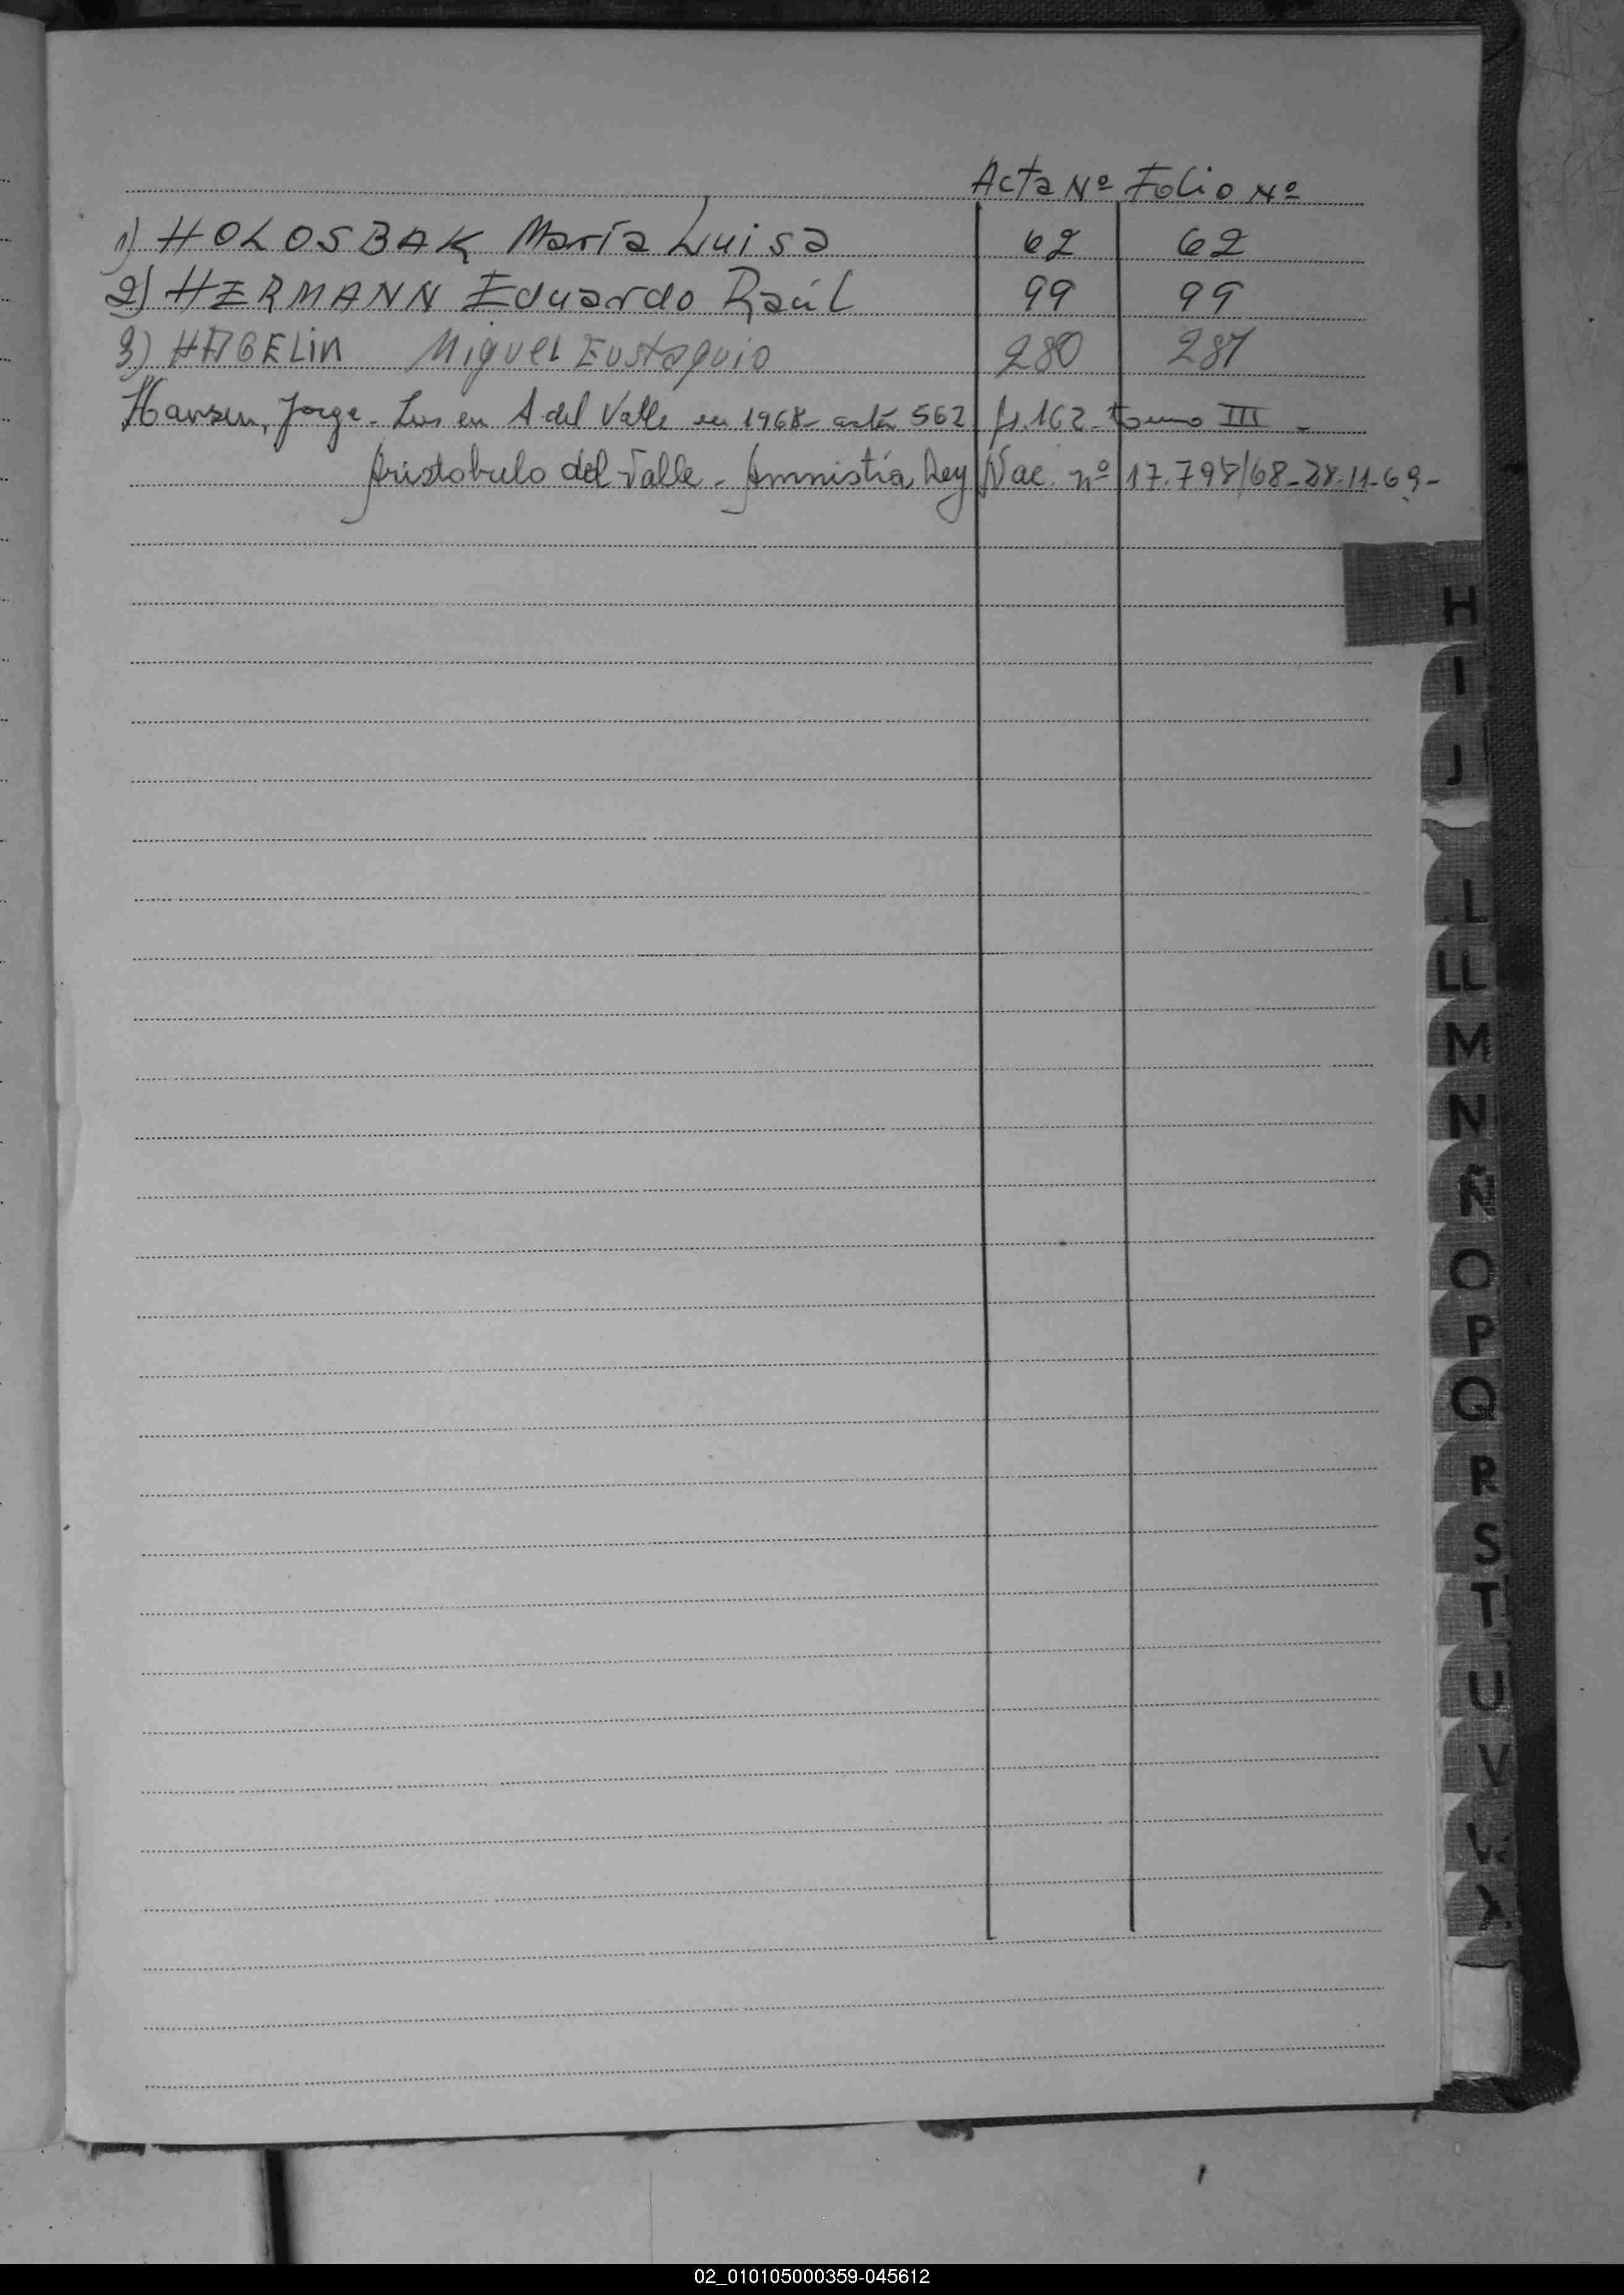 Acta Nº Folio Nº
1) HOLOSBAK María Luisa 62 62
2) HERMANN Eduardo Raúl 99 99
3) HABELin Miguel Eustaquio 280
Hansen, Jorge - en A del Valle en 1968 - acta 562 fs. 162 - tomo III -
Aristobulo del Valle - Amnistía, Ley Nac. nº 17.798/68 - 28-11-69 -
H
I
J
L
LL
M
N
Ñ
O
P
Q
R
S
T
U
V
02_010105000359-045612